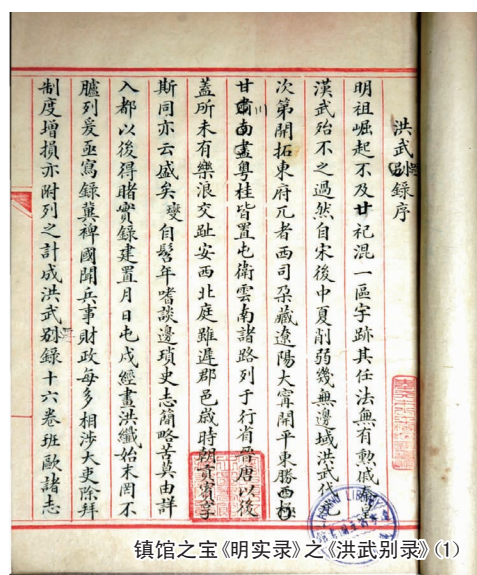 洪武別錄序
明祖崛起不及廿祀混一區宇跡其任法無有勲戚
漢武殆不之過然自宋後中夏削弱幾無邊域洪武
次第開拓東府兀者西司朵藏遼陽大寧開平東勝西極
甘肅南盡粵桂皆置屯衛雲南諸路列于行省晉唐以後
蓋所未有樂浪交趾安西北庭雖遲郡邑歲時朝貢賓享
斯同亦云盛矣變自髫年嗜談邊瑣史志簡略苦莫由詳
入都以後得睹實錄建置月日屯戍經畫洪纖始末罔不
臚列爰亟寫錄冀裨國聞兵事財政每多相涉大吏除拜
制度增損亦附列之計成洪武別錄十六卷班歐諸志
镇馆之宝《明实录》之《洪武别录》(1)